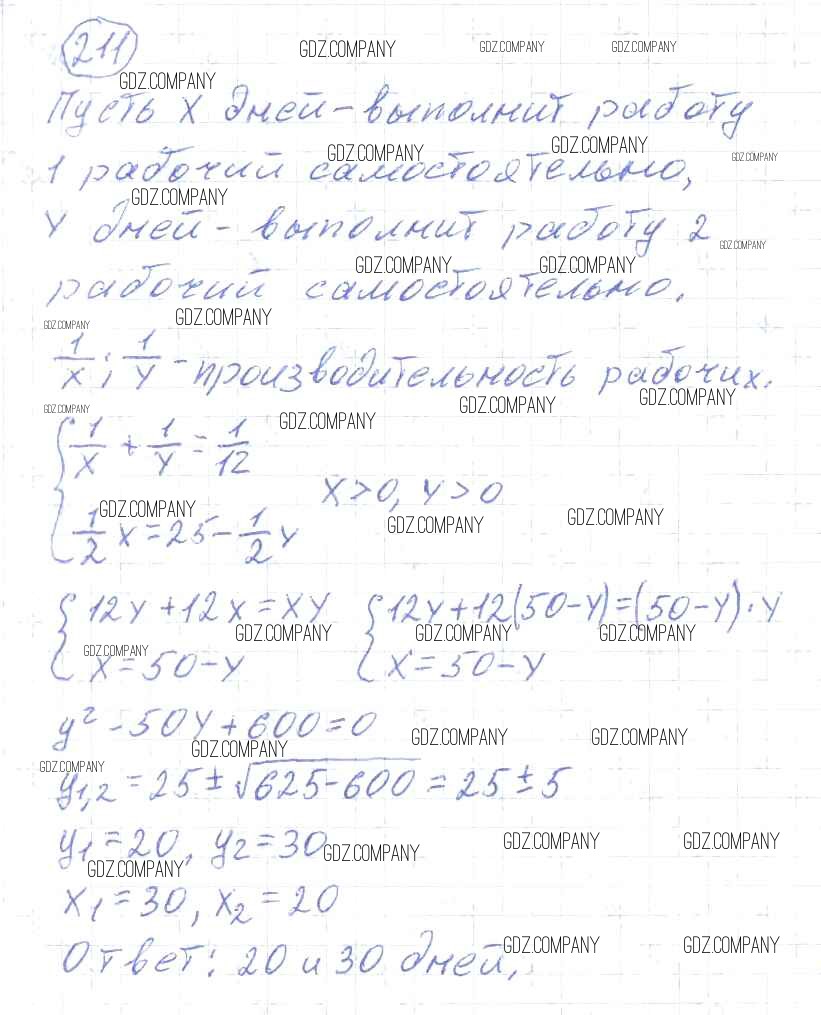 211
GDZ.COMPANY GDZ.COMPANY GDZ.COMPANY
GDZ.COMPANY
Пусть x дней – выполнит работу
GDZ.COMPANY GDZ.COMPANY GDZ.COMPANY
1 рабочий самостоятельно,
GDZ.COMPANY
y дней – выполнит работу 2
GDZ.COMPANY
GDZ.COMPANY GDZ.COMPANY
рабочий самостоятельно.
GDZ.COMPANY
GDZ.COMPANY
1/x ; 1/y – производительность рабочих.
GDZ.COMPANY GDZ.COMPANY GDZ.COMPANY
GDZ.COMPANY
{ 1/x + 1/y = 1/12
x>0, y>0
GDZ.COMPANY GDZ.COMPANY GDZ.COMPANY
1/2 x = 25 - 1/2 y
{ 12y + 12x = xy { 12y + 12(50-y) = (50-y)·y
GDZ.COMPANY GDZ.COMPANY GDZ.COMPANY
GDZ.COMPANY
x = 50-y x = 50-y
y² - 50y + 600 = 0
GDZ.COMPANY GDZ.COMPANY GDZ.COMPANY
GDZ.COMPANY
y1,2 = 25 ± √625-600 = 25 ± 5
y1 = 20, y2 = 30
GDZ.COMPANY GDZ.COMPANY GDZ.COMPANY
GDZ.COMPANY
x1 = 30, x2 = 20
GDZ.COMPANY GDZ.COMPANY
Ответ: 20 и 30 дней.